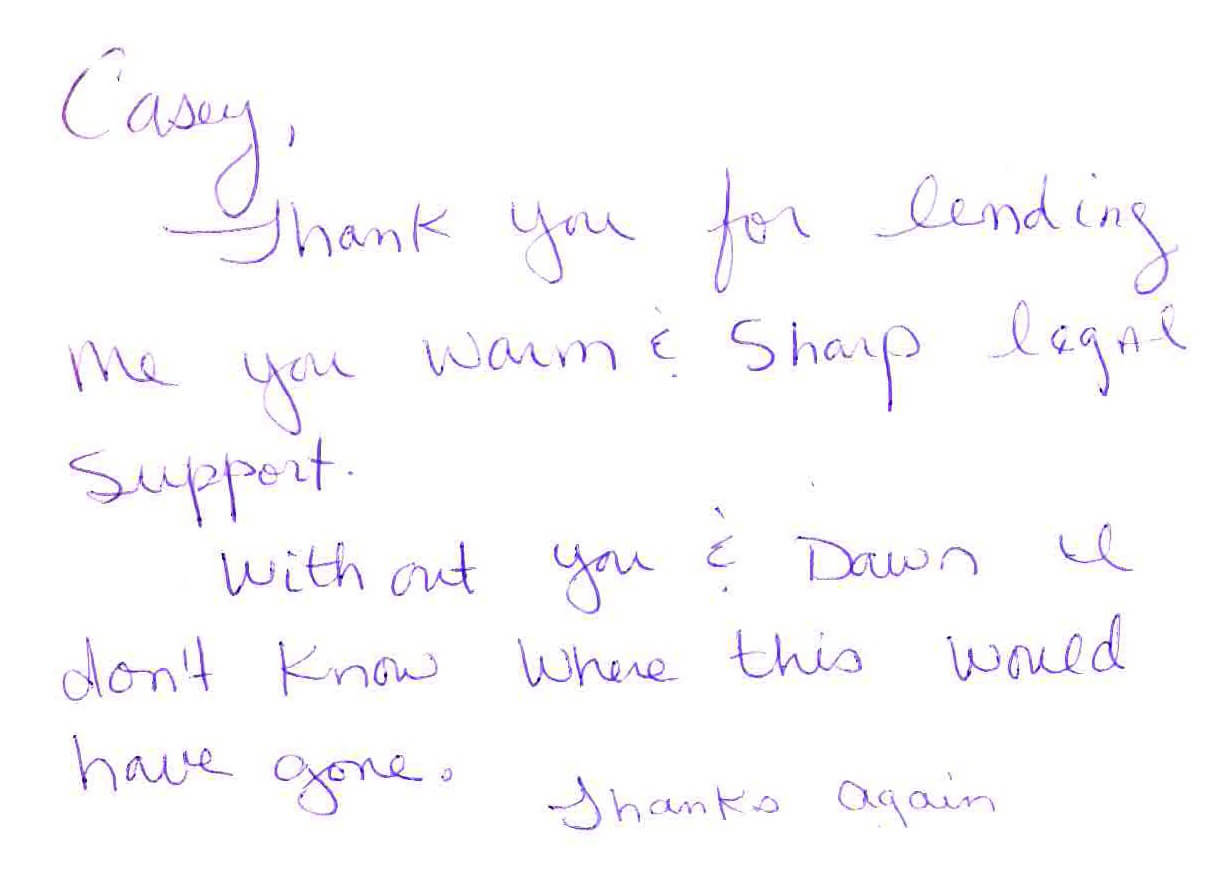 Casey,
Thank you for lending
me you warm & Sharp legal
Support.
Without you & Dawn I
don't know where this would
have gone.
Thanks again